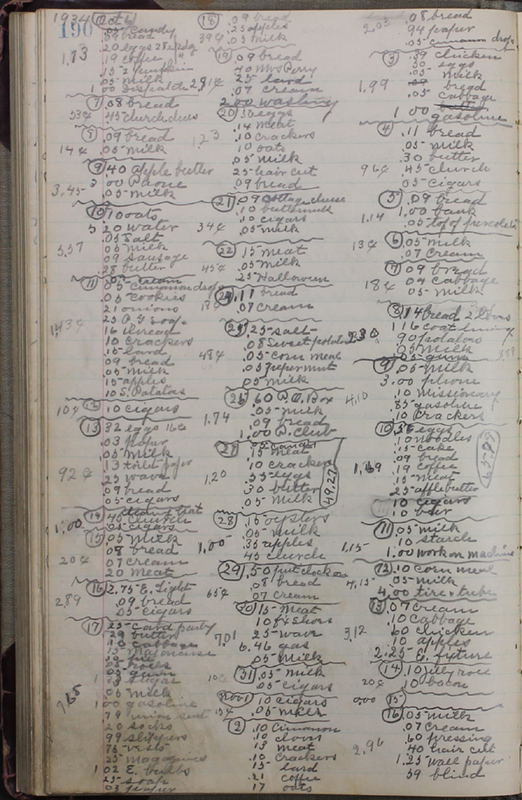 1934 Oct 6
190
05 candy
09 bread
20 eggs
19 coffee
15 2 pumpkin
05 milk
1.73
7 .08 bread
45 church dues
53¢
8 .09 bread
.05 milk
14¢
9 .40 apple butter
3 00 Phone
.05 milk
3.45
10 10 oats
5 20 water
05 salt
05 milk
09 sausage
28 butter
5.57
11
05 cookies
21 onions
16 thread
10 crackers
15 lard
09 bread
05 milk
15 apples
10 S. Potatoes
10¢ 12 10 cigars
13 32 eggs
03 paper
05 milk
13 toilet paper
25 wave
09 bread
05 cigars
92¢
14
45 church
05 cigars
1.00
15 05 milk
08 bread
07 cream
20 meat
16 2.75 E. Light
.09 bread
05 cigars
2.89
17 25 card party
29 butter
10 cabbage
05 rolls
03 gum
05 milk
1 00 gasoline
79 union suit
20 socks
99 slippers
75 vests
25 magazines
1 02 E. bulbs
25 soap
03 paper
7.65
18 .09 bread
.25 apples
.05 milk
39¢
19 .09 bread
40 Mrs Perry
25 lard
07 cream
2.00 washing
20 30 eggs
14 meat
10 crackers
10 oats
05 milk
25 hair cut
09 bread
1 23
21 .09 cottage cheese
.10 buttermilk
.10 cigars
05 milk
34¢
22 15 meat
.05 milk
25 Halloween
45¢
.11 bread
.07 cream
18¢
25 25 salt
.08 sweet potatoes
.05 corn meal
.05 peppermint
05 milk
48¢
26 60 P.O. Box
.05 milk
.09 bread
1.00 P. Club
1.74
27
15 meat
10 crackers
35 eggs
30 butter
05 milk
1.20
49.27
28 .15 oysters
05 milk
35 apples
45 church
1.00
29 .50
08 bread
07 cream
65¢
30 15 meat
25 wave
6.46 gas
05 milk
7.01
31 .05 milk
05 cigars
10¢
Nov 1 10 cigars
.05 milk
15¢
2 .10 cinnamon
.10 cloves
13 meat
.10 crackers
15 lard
.21 coffee
17 oats
.08 bread
94 paper
.05 cinnamon drops
2.03
3 .39 chicken
30 eggs
.05 milk
bread
.05 cabbage
1 00 gasoline
1.99
4 .11 bread
.05 milk
30 butter
.45 church
.05 cigars
96¢
5 .09 bread
1.00 bank
.05
1.14
13¢ 6 .05 milk
.07 cream
7 .09 bread
.04 cabbage
.05 milk
18¢
8 14 bread
1 16 coat lining
90 potatoes
05 milk
9 .05 milk
3.00 phone
.10 Missionary
.85 gasoline
.10 crackers
4.10
10 36 eggs
.10 noodles
.15 cake
.09 bread
.19 coffee
.15 meat
.25 apple butter
10 cigars
1.39
11 05 milk
.10 starch
1.00 work on machine
1.15
12 .10 corn meal
.05 milk
4.00 tire + tube
4.15
13 .07 cream
.10 cabbage
60 chicken
10 apples
2.25 G. picture
3.12
14
.10 bacon
20¢
0.00 15
16 .05 milk
.07 cream
.60 pressing
.40 hair cut
1.25 wall paper
59 blind
2.96